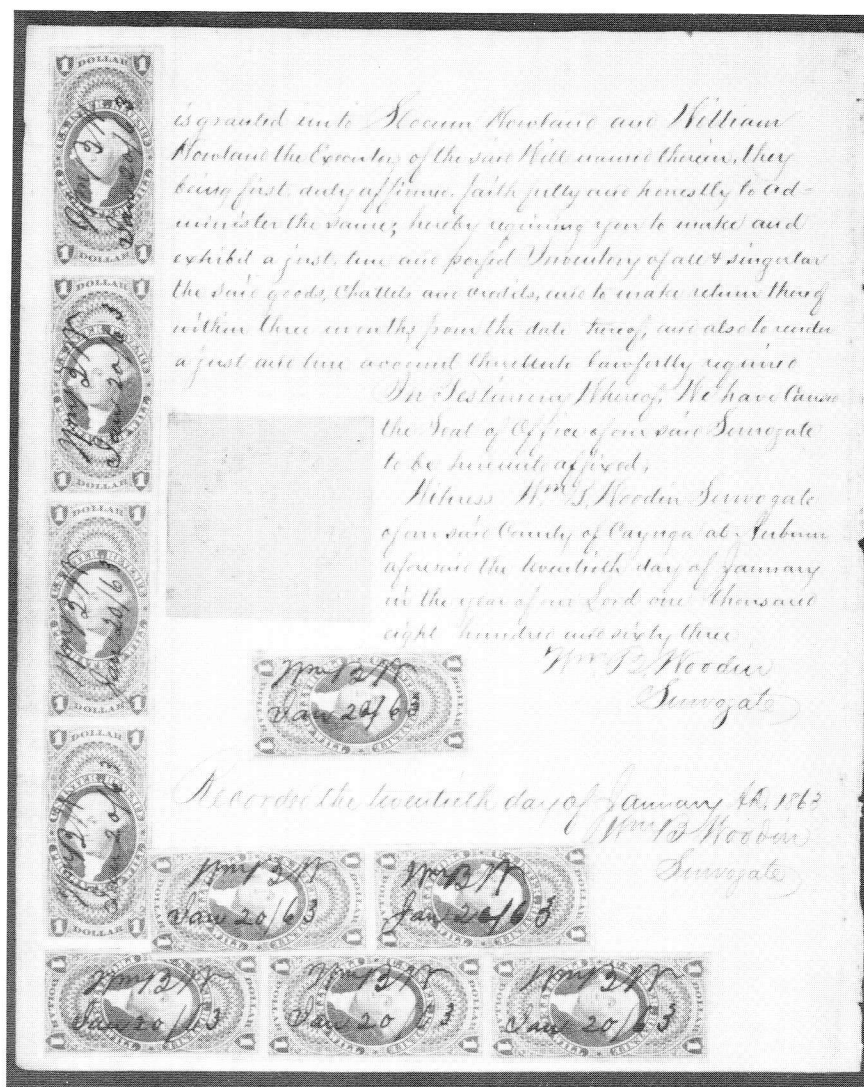 is granted unto Slocum Howland and William
Howland the Executors of the said Will named therein, they
being first duly affirmed faithfully and honestly to ad-
minister the same; hereby requiring you to make and
exhibit a just true and perfect Inventory of all & singular
the said goods, Chattels and credits, and to make return thereof
within three months from the date hereof, and also to render
a just and true account thereof when lawfully required
In Testimony Whereof, We have Caused
the Seal of Office of our said Surrogate
to be hereunto affixed,
Witness Wm B. Woodin Surrogate
of our said County of Cayuga at Auburn
aforesaid the twentieth day of January
in the year of our Lord one thousand
eight hundred and sixty three
Wm B Woodin
Surrogate
Recorded the twentieth day of January AD. 1863
Wm B Woodin
Surrogate
1 DOLLAR 1
Wm B W
Jan 20/63
1 DOLLAR 1
1 DOLLAR 1
Wm B W
Jan 20/63
1 DOLLAR 1
1 DOLLAR 1
Wm B W
Jan 20/63
1 DOLLAR 1
1 DOLLAR 1
Wm B W
Jan 20/63
1 DOLLAR 1
Wm B W
Jan 20/63
Wm B W
Jan 20/63
Wm B W
Jan 20/63
Wm B W
Jan 20/63
Wm B W
Jan 20 63
Wm B W
Jan 20/63